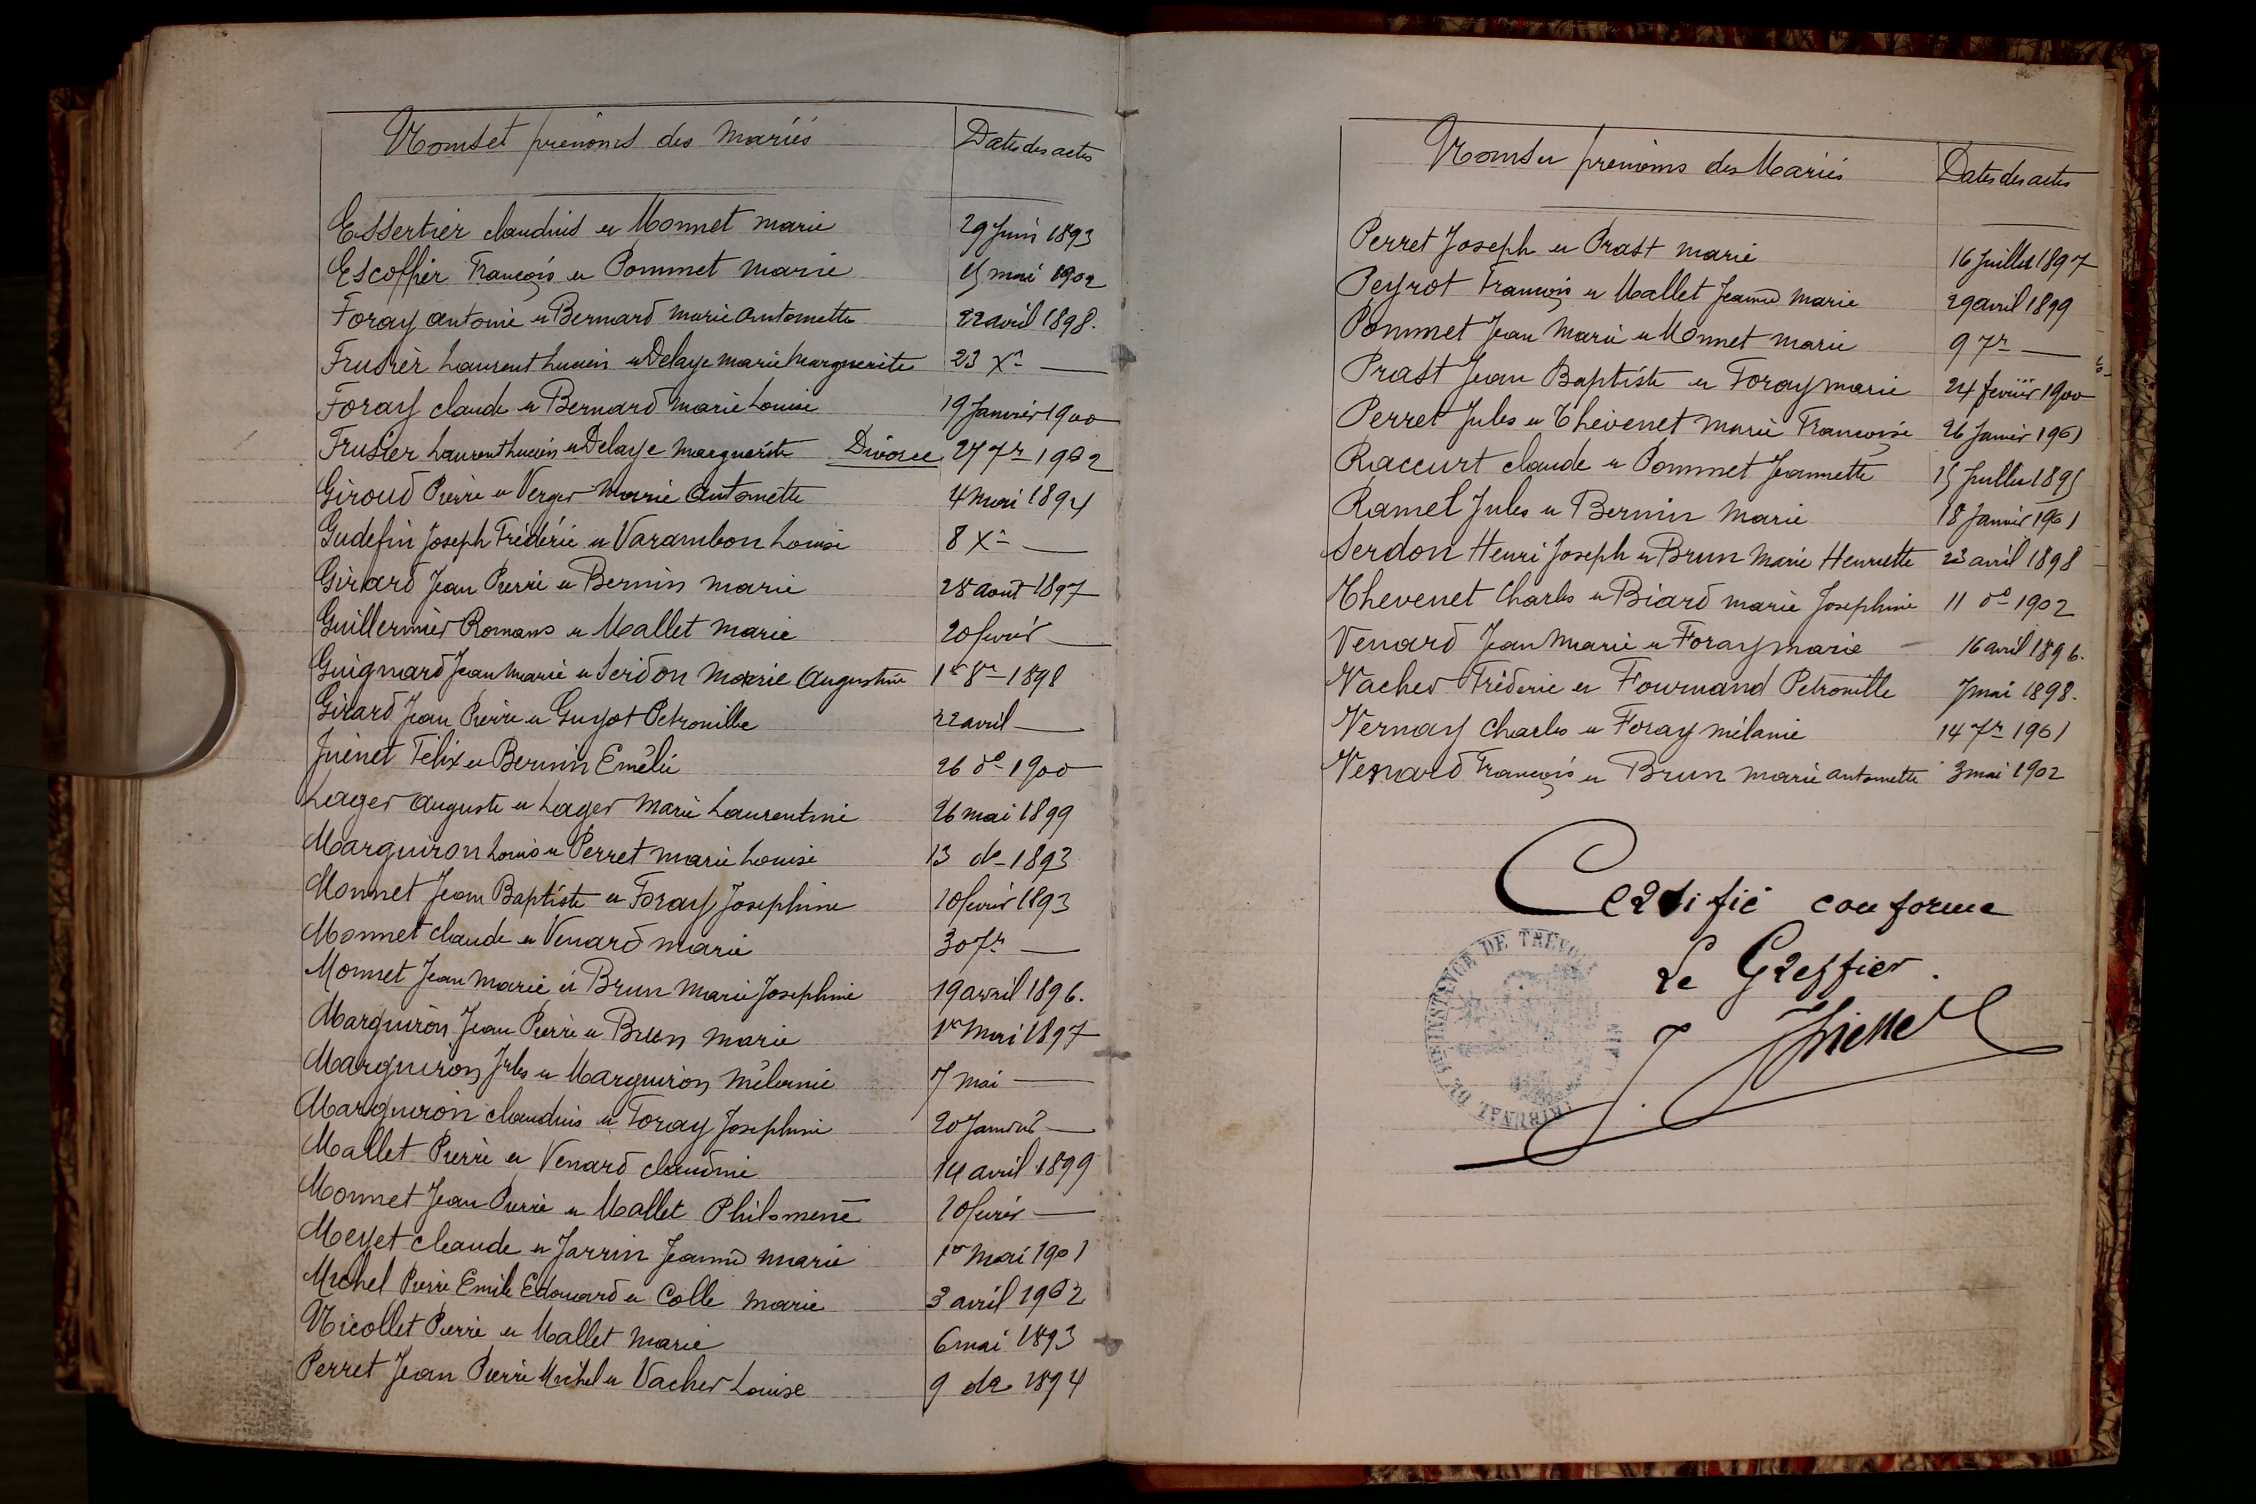 Noms et prénoms des mariés
Dates des actes
Essertier claudius et Monnet marie 29 Juin 1893
Escoffier François et Pommet marie 15 mai 1902
Foray antoine et Bernard marie antoinette 22 avril 1898.
Frusier Laurent Lucien et Delaye marie marguerite 23 Xre —
Foray claude et Bernard marie Louise 19 Janvier 1900
Frusier Laurent Lucien et Delaye marguerite Divorce 27 7re 1902
Giroud Pierre et Verger marie antoinette 4 mai 1894
Gudefin Joseph Fréderic et Varambon Louise 8 Xre —
Girard Jean Pierre et Bernin marie 28 aout 1897
Guillermier Romans et Mallet marie 20 fevrier —
Guignard Jean marie et Serdon marie augustine 1er 8re 1898
Girard Jean Pierre et Guyot Petronille 22 avril —
Juenet Félix et Bernin Emélie 26 do 1900
Lager auguste et Lager marie Laurentine 26 mai 1899
Marguiron Louis et Perret marie Louise 13 do 1893
Monnet Jean Baptiste et Foray Josephine 10 fevrier 1893
Monnet claude et Venard marie 30 7re —
Monnet Jean marie et Brun marie Josephine 19 avril 1896.
Marguiron Jean Pierre et Brun marie 1er mai 1897
Marguiron Jules et Marguiron mélanie 7 mai —
Marguiron claudius et Foray Josephine 20 Janvier —
Mallet Pierre et Venard claudine 14 avril 1899
Monnet Jean Pierre et Mallet Philomene 10 fevrier —
Meyet claude et Jarrin Jeanne marie 1er mai 1901
Michel Pierre Emile Edouard et Colle marie 3 avril 1902
Nicollet Pierre et Mallet marie 6 mai 1893
Perret Jean Pierre Michel et Vacher Louise 9 do 1894
Noms et prénoms des Mariés
Dates des actes
Perret Joseph et Prast marie 16 Juillet 1897
Peyrot François et Mallet Jeanne marie 29 avril 1899
Pommet Jean marie et Monnet marie 9 7re —
Prast Jean Baptiste et Foray marie 24 fevrier 1900
Perret Jules et Thévenet marie Françoise 26 Janvier 1901
Raccurt claude et Pommet Jeannette 15 Juillet 1895
Ramel Jules et Bernin marie 18 Janvier 1901
Serdon Henri Joseph et Brun marie Henriette 23 avril 1898
Thevenet Charles et Biard marie Josephine 11 do 1902
Venard Jean marie et Foray marie 16 avril 1896.
Vacher Fréderic et Fournand Petronille 7 mai 1898.
Vernay Charles et Foray mélanie 14 7re 1901
Venard François et Brun marie antoinette 3 mai 1902
Certifié conforme
Le Greffier.
TRIBUNAL DE 1RE INSTANCE DE TRÉVOUX